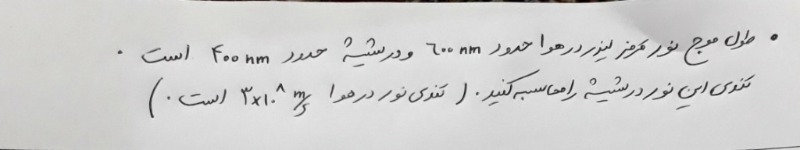 • طول موج نور قرمز لیزر در هوا حدود ٦٠٠ nm و در شیشه حدود ۴۰۰ nm است .
تندی این نور در شیشه را محاسبه کنید . ( تندی نور در هوا ۳×۱۰^۸ m/s است . )